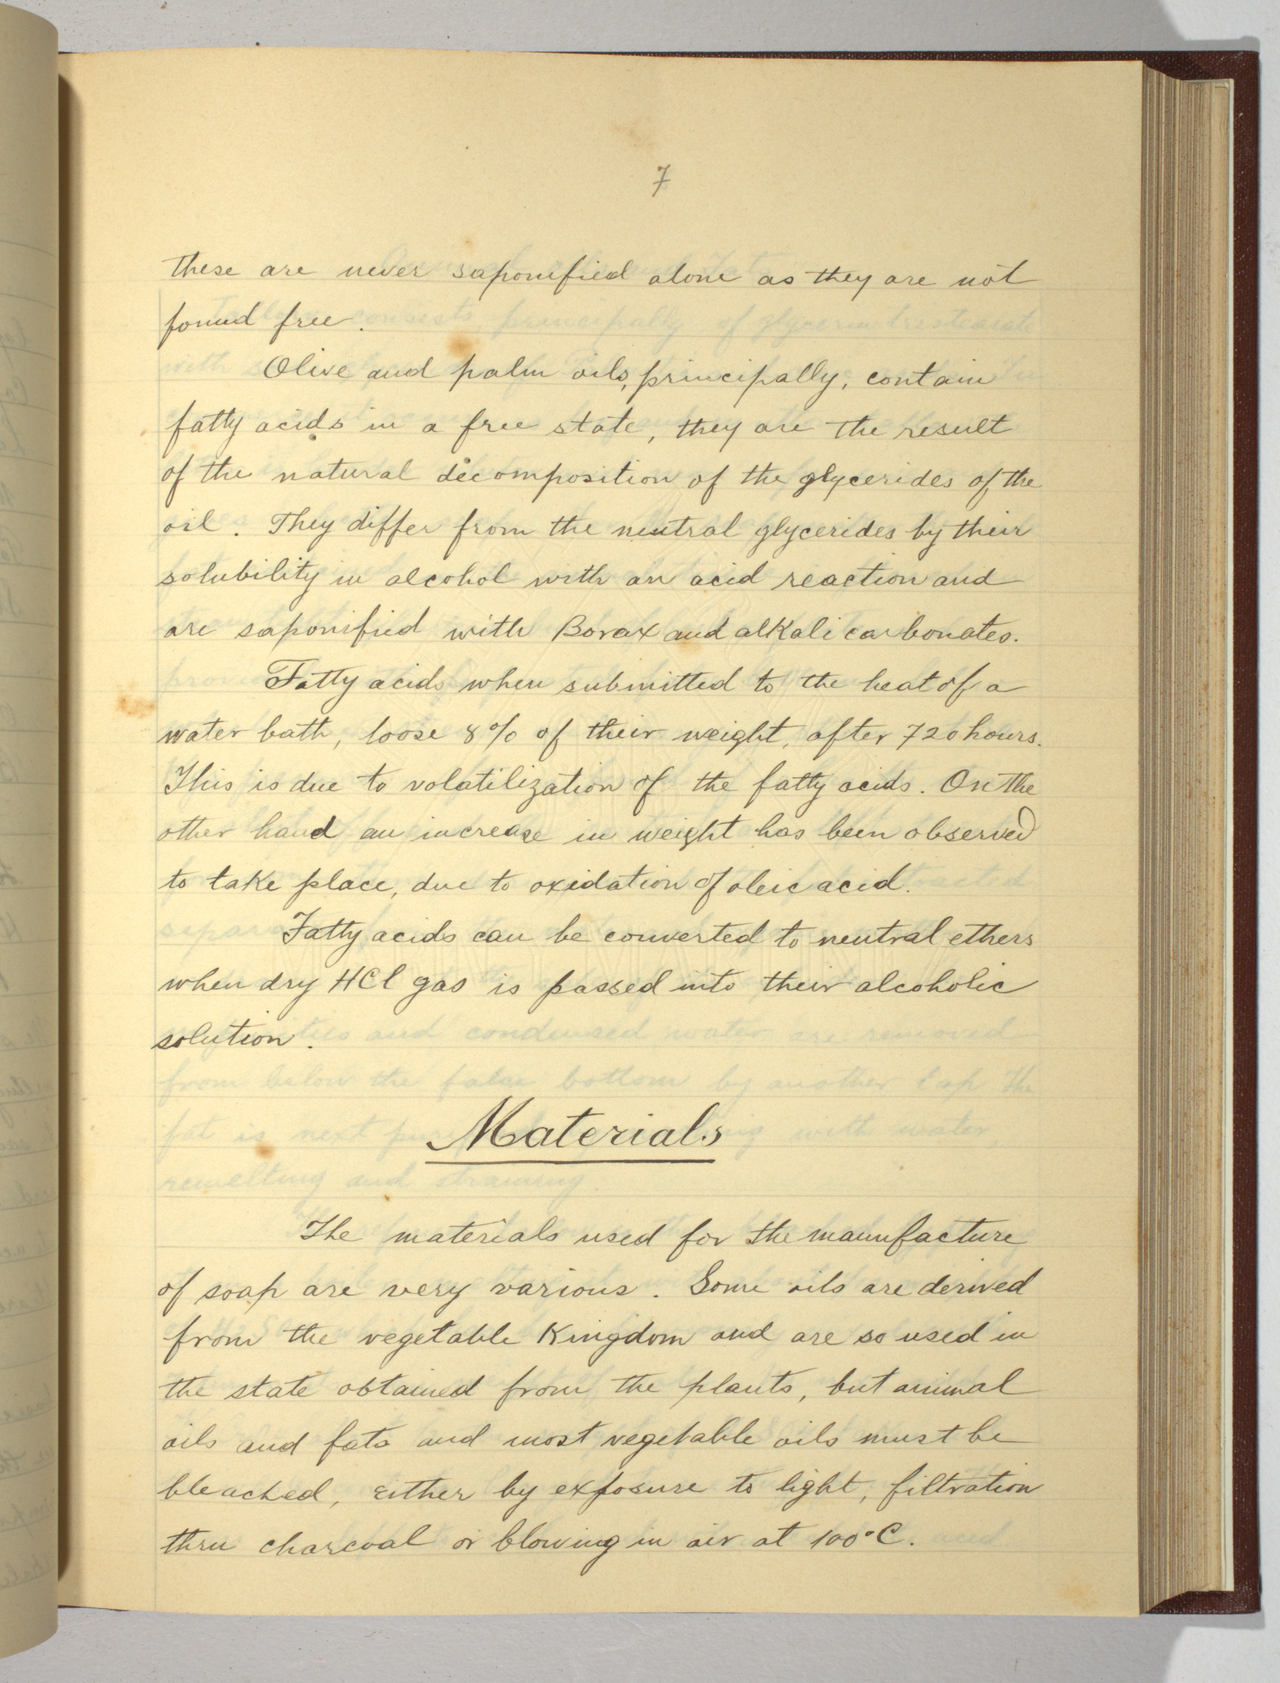 7
these are never saponified alone as they are not
found free.
Olive and palm oils, principally, contain
fatty acids in a free state, they are the result
of the natural decomposition of the glycerides of the
oil. They differ from the neutral glycerides by their
solubility in alcohol with an acid reaction and
are saponified with Borax and alkali carbonates.
Fatty acids when submitted to the heat of a
water bath, loose 8% of their weight, after 720 hours.
This is due to volatilization of the fatty acids. On the
other hand an increase in weight has been observed
to take place, due to oxidation of oleic acid.
Fatty acids can be converted to neutral ethers
when dry HCl gas is passed into their alcoholic
solution.
Materials
The materials used for the manufacture
of soap are very various. Some oils are derived
from the vegetable Kingdom and are so used in
the state obtained from the plants, but animal
oils and fats and most vegetable oils must be
bleached, either by exposure to light, filtration
thru charcoal or blowing in air at 100°C.